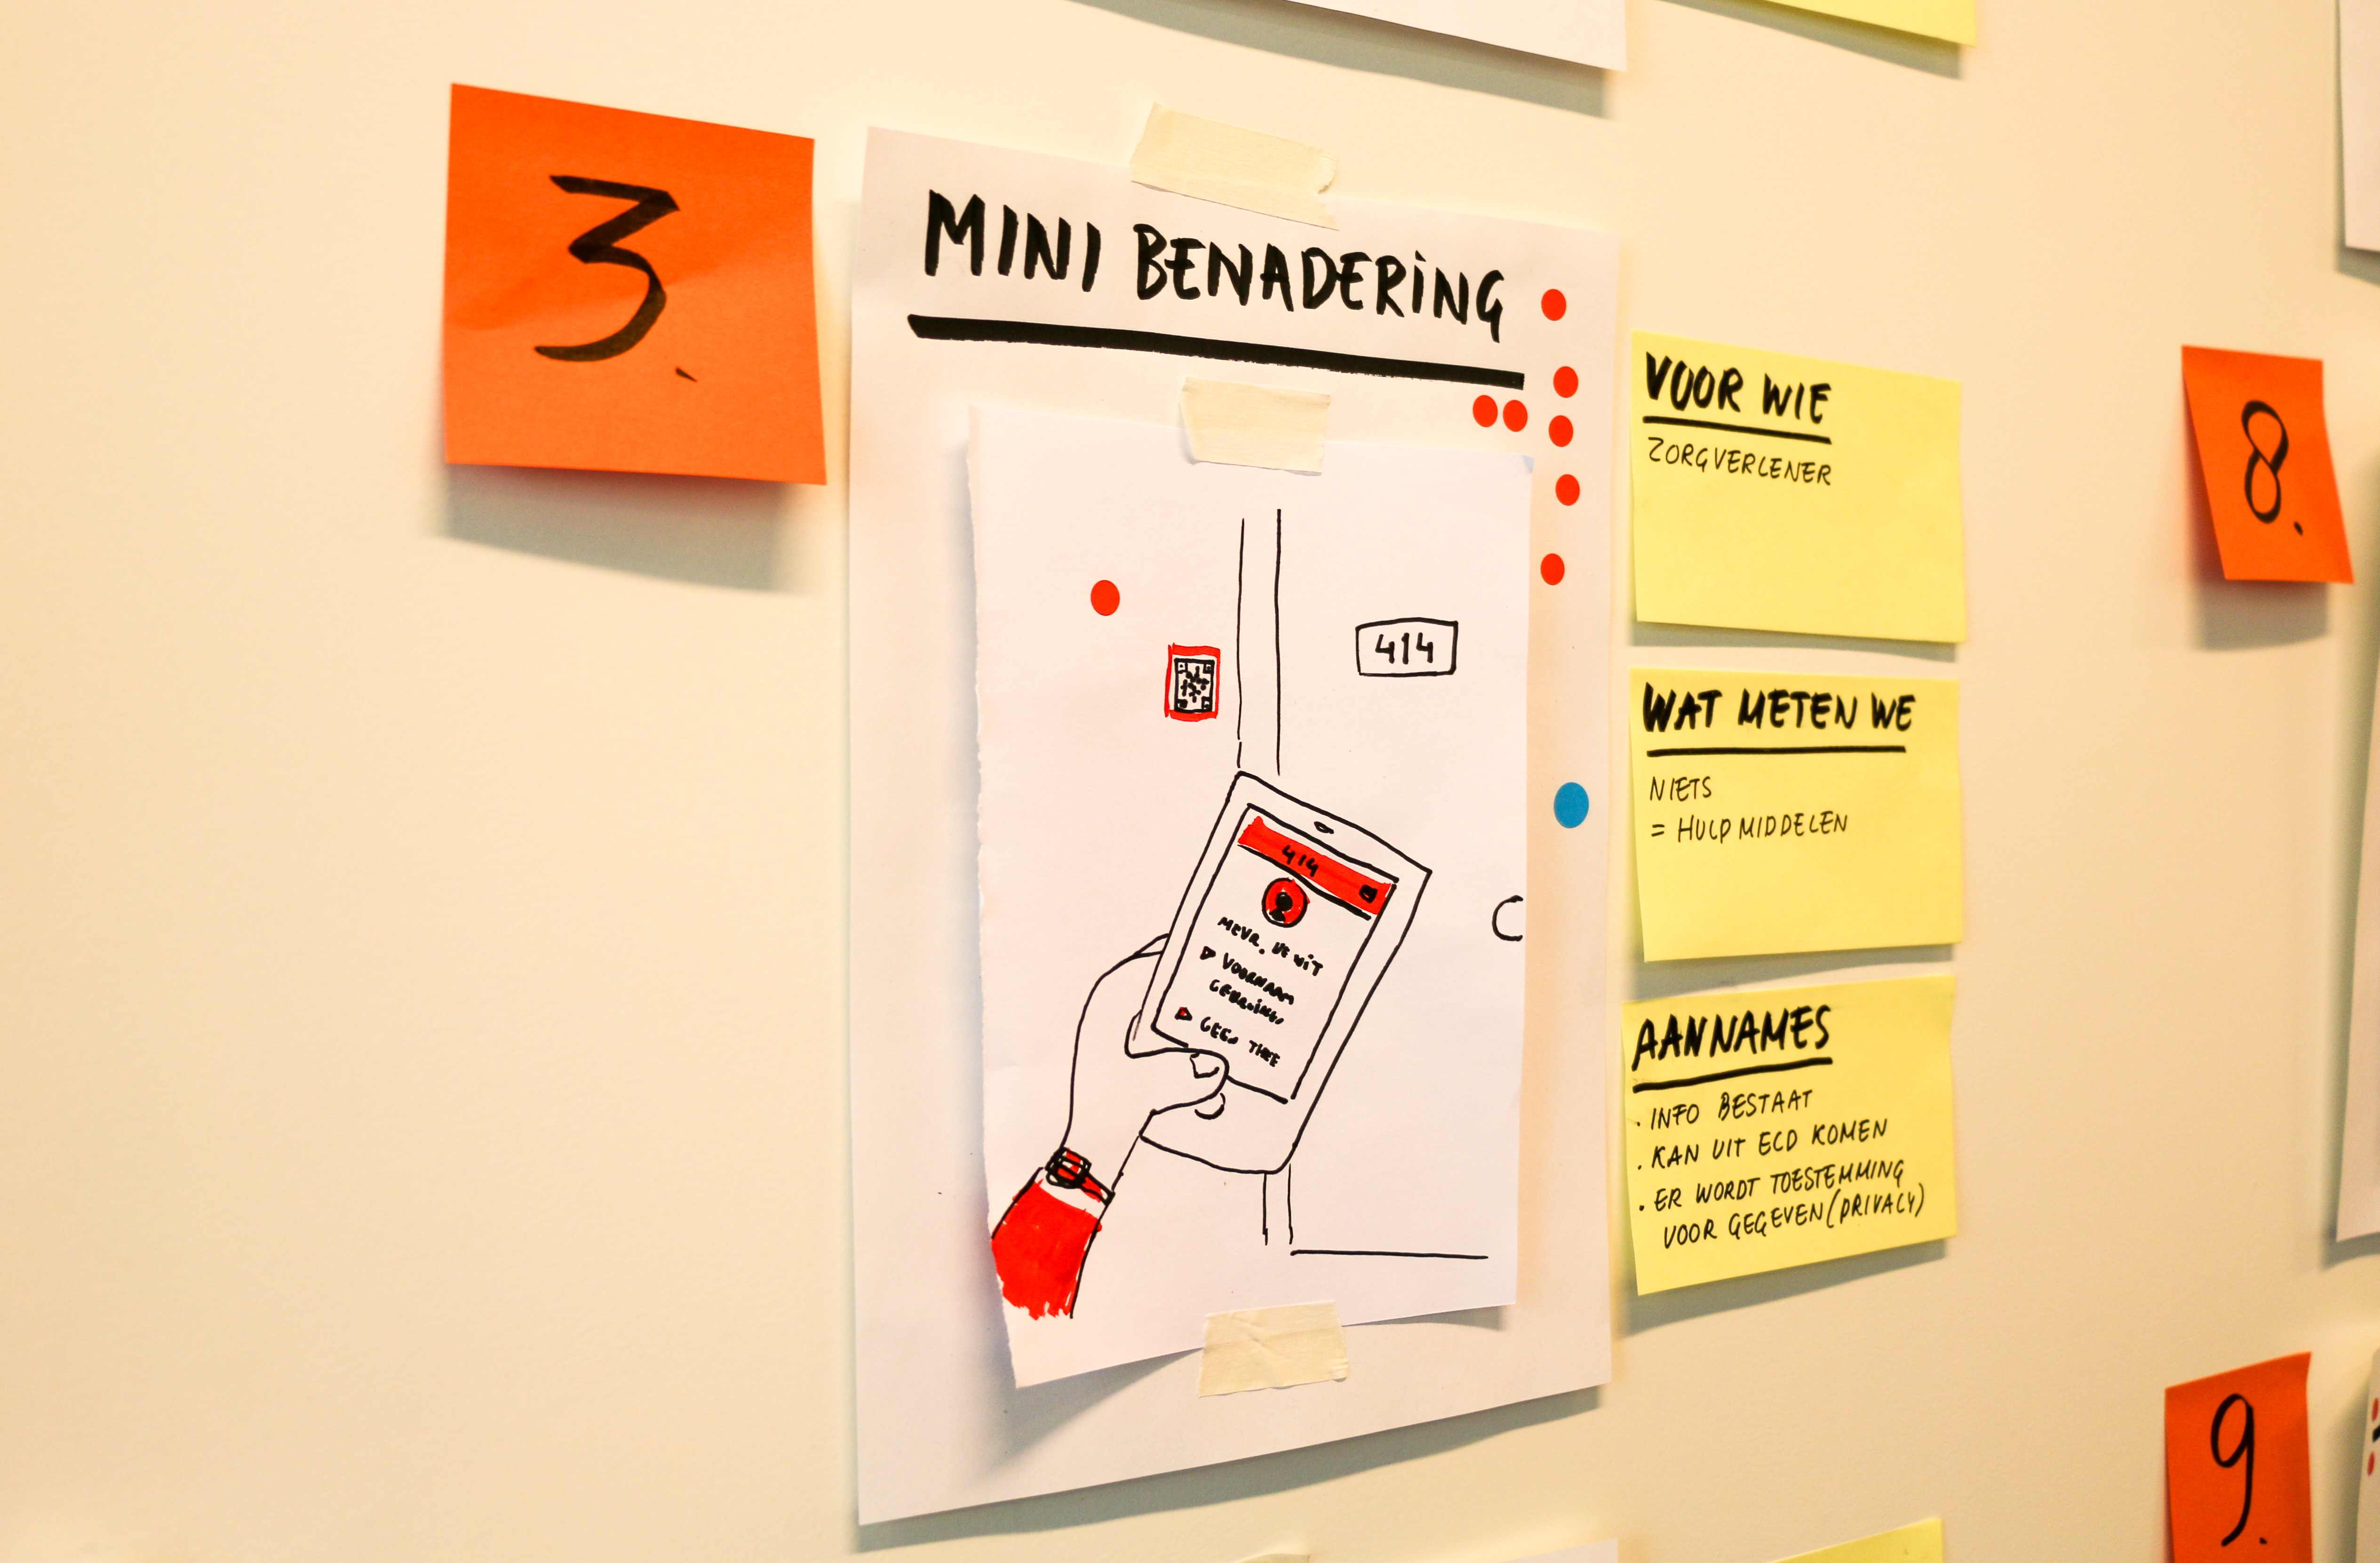 3.
MINI BENADERING
414
414
MEVR. DE WIT
VOORNAAM
GEEN THEE
VOOR WIE
ZORGVERLENER
WAT METEN WE
NIETS
= HULPMIDDELEN
AANNAMES
. INFO BESTAAT
. KAN UIT ECD KOMEN
. ER WORDT TOESTEMMING
VOOR GEGEVEN (PRIVACY)
8.
9.